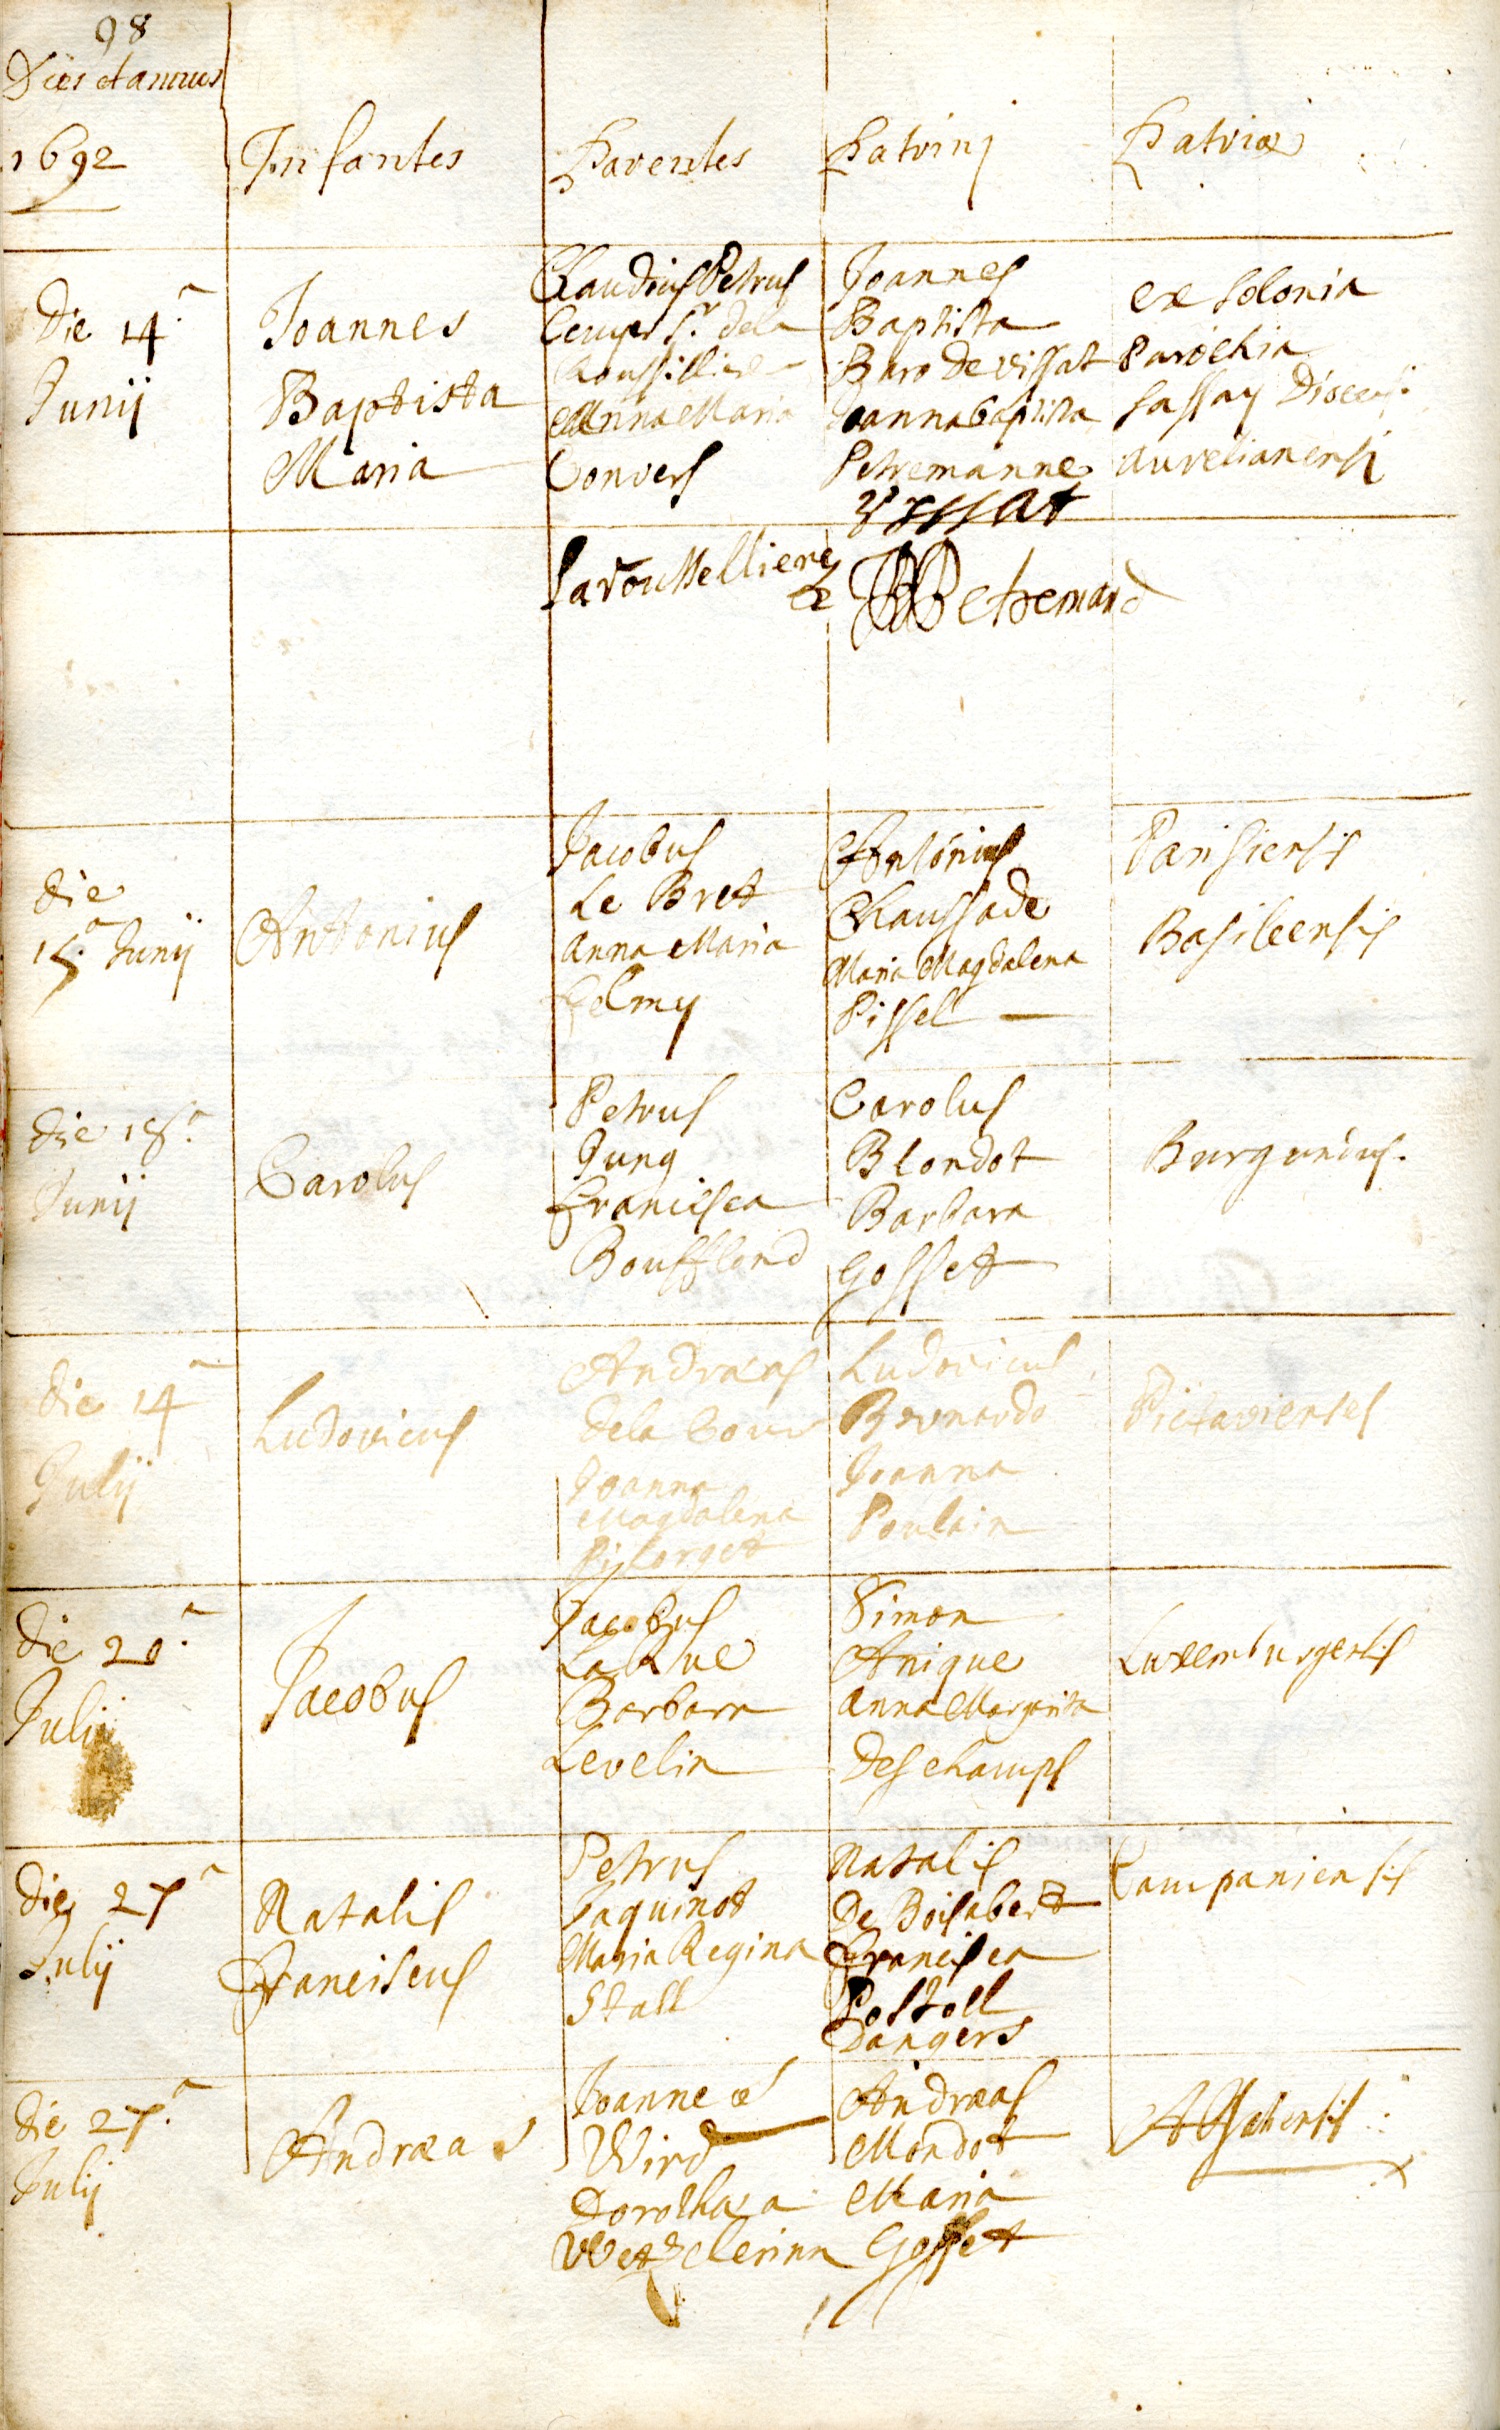 98
Dies et annus
1692
Infantes
Parentes
Patrinj
Patriæ
Die 14.a
Junij
Joannes
Baptista
Maria
Claudius Petrus
Sr. dela
Anna Maria
Convers
Joannes
Baptista
Baro de Vissat
Joanna baptista
Petremanne
Vissat
ex Solonia
Parochia
Sassay Diocesis
Aurelianensi
Larousselliere
Petremand
die
15.a Junij
Antonius
Jacobus
Le Bret
Anna Maria
Felmy
Antonius
Chaussade
Maria Magdalena
Pissel
Parisiensis
Basileensis
die 18.a
Junij
Carolus
Petrus
Jung
Francisca
Boufflond
Carolus
Blondot
Barbara
Gosset
Burgundus.
die 14a
Julij
Ludovicus
Andræas
dela Cour
Joanna
Magdalena
Ludovicus
Bernardo
Joanna
Poulain
Pictavienses
die 20.a
Julij
Jacobus
Jacobus
La Rue
Barbara
Levelin
Simon
Anique
Anna Margarita
Deschamps
Luxemburgensis
die 27a
Julij
Natalis
Franciscus
Petrus
Jaquinot
Maria Regina
Stall
Natalis
De Boisabert
Francisca
Postoll
Dangers
Campaniensis
die 27.a
Julij
Andræas
Joannes
Wird
Dorothæa
Wetzclerinn
Andræas
Mondot
Maria
Gosset
Alsatiensis